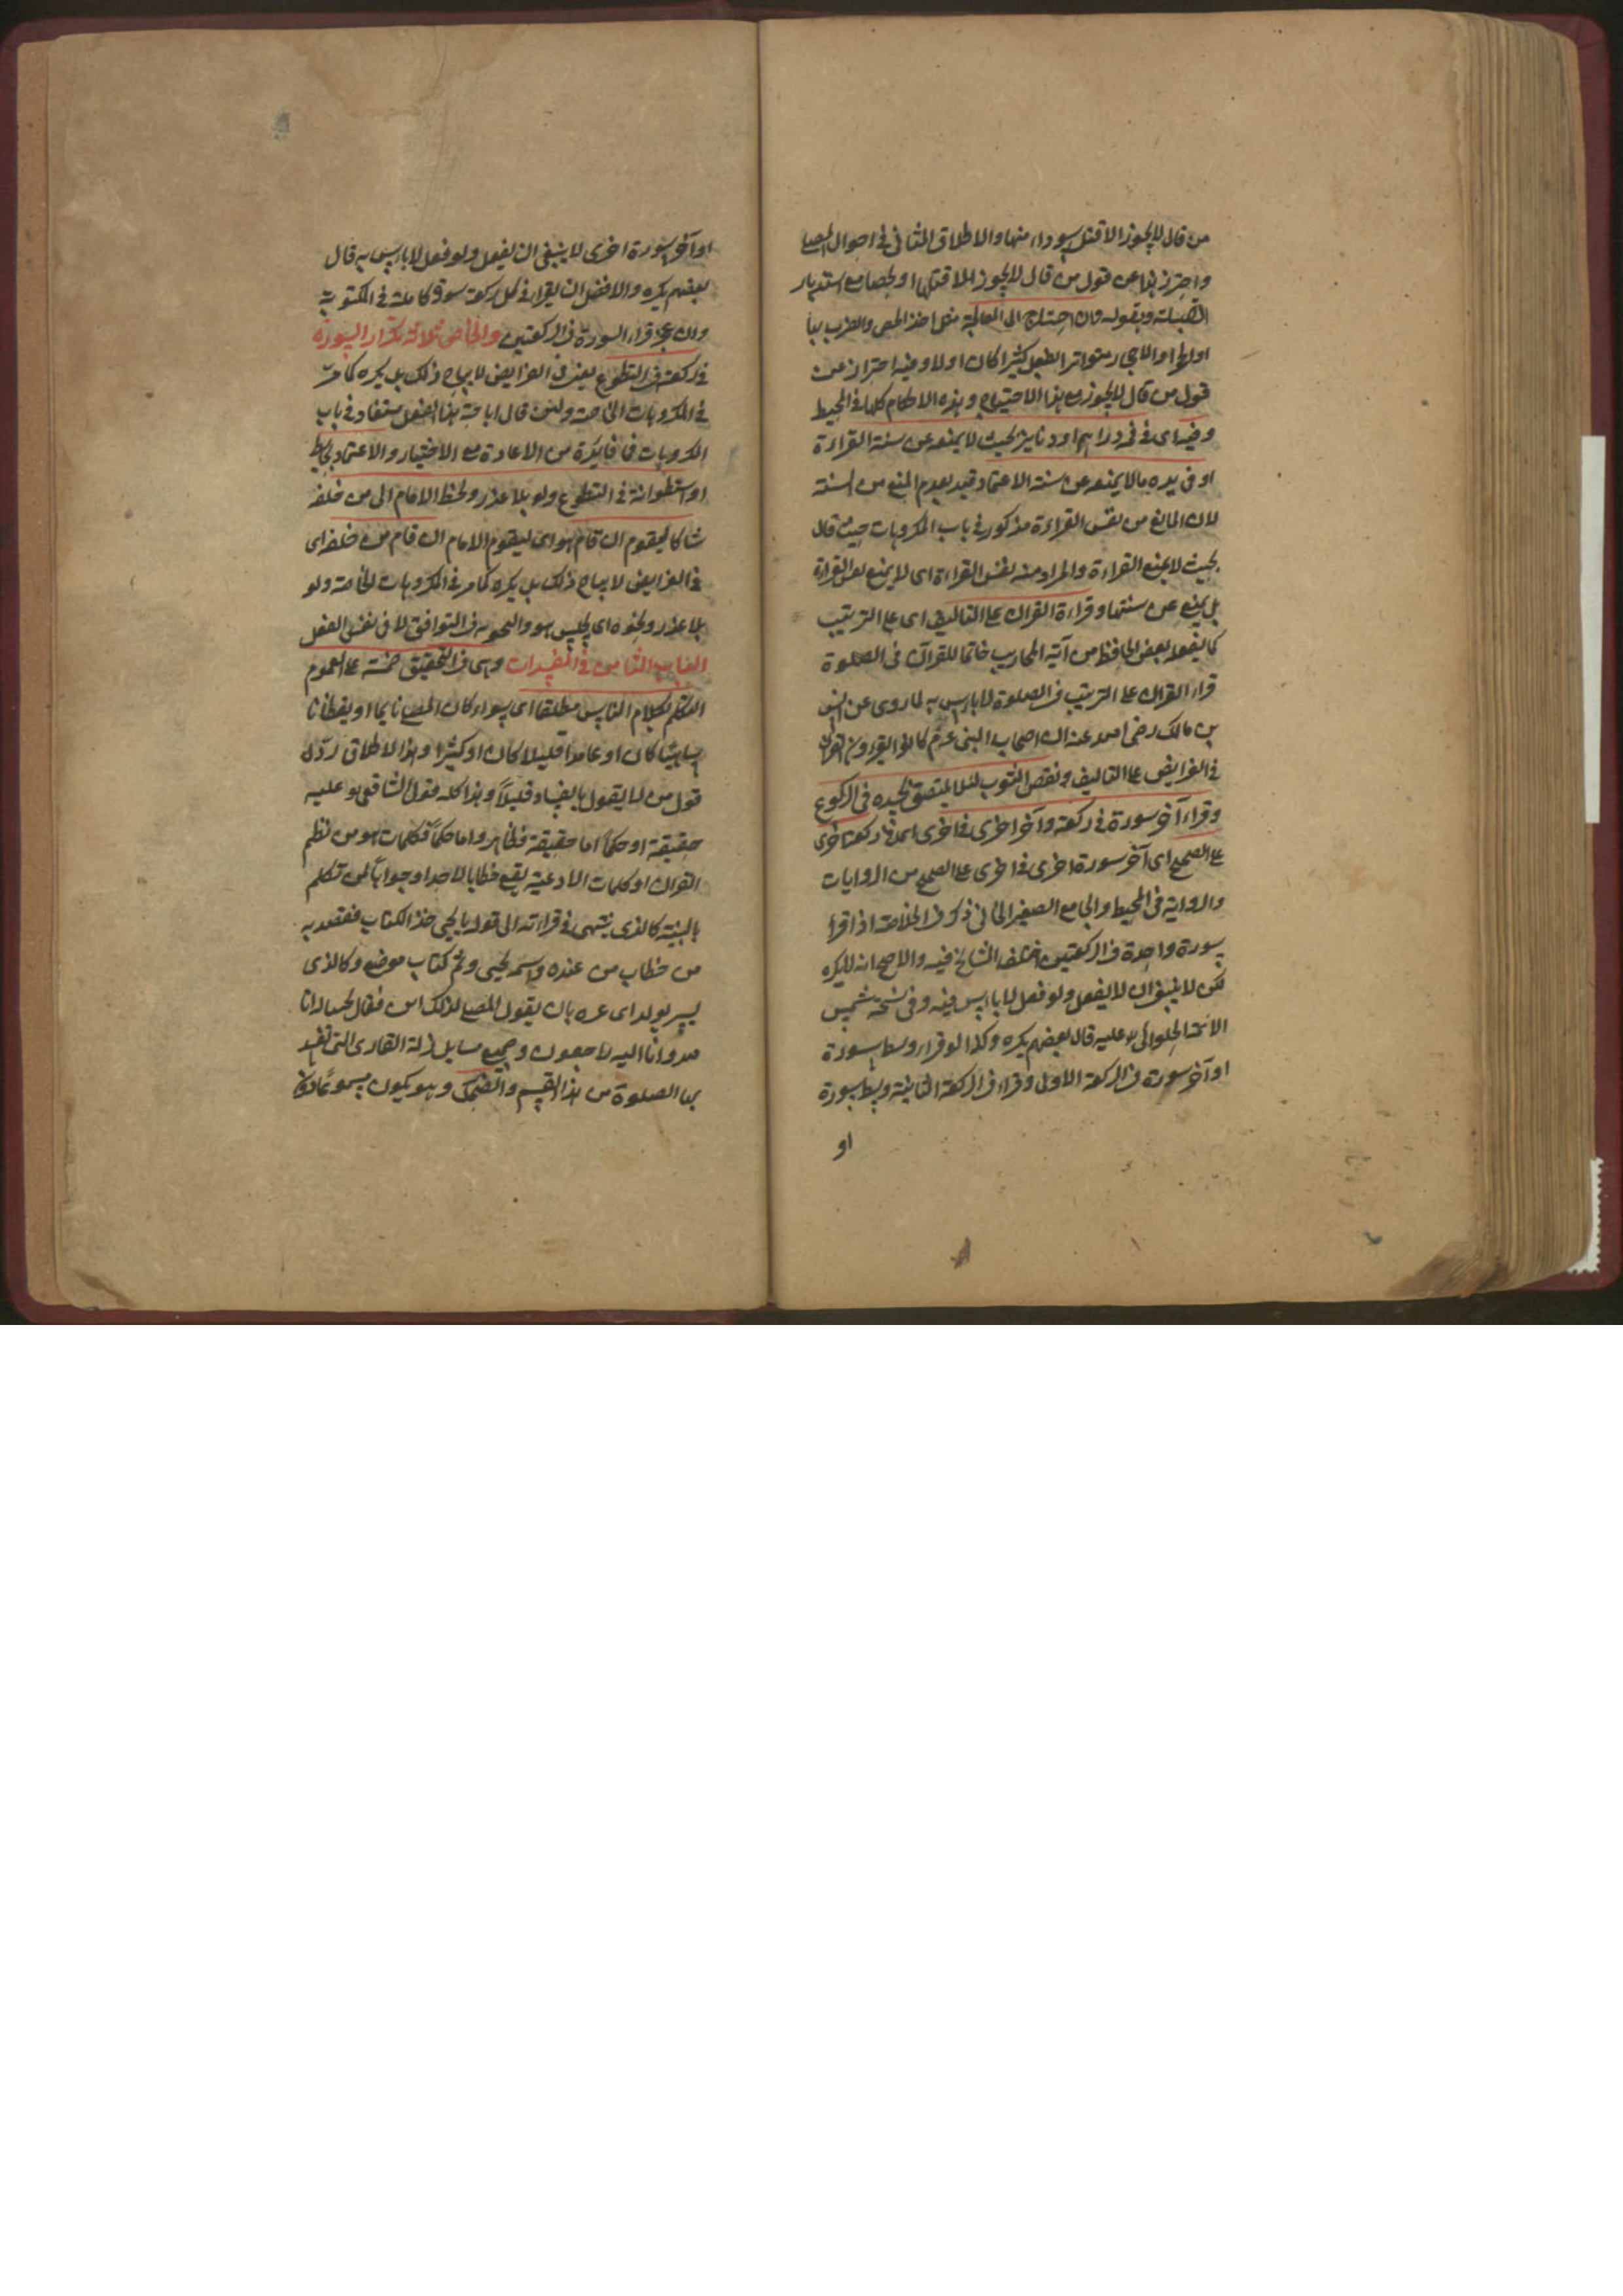 من قال لا يجوز الا قتل سوداء منها والاطلاق الثانى فى احوال المصلى
واحترز بها عن قول من قال لا يجوز الا قتلها او بحصا مع استدبار
القبلة وبقوله وان احتاج الى المعالجة مثل اخذ الحصى والضرب بها
قول من قال لا يجوز مع هذا الاحتياج وهذه الاحكام كلها فى المحيط
وفيه اى فى فى دراهم او دنانير بحيث لا يمنعه عن سنة القراءة
او فى يده ما لا يمنعه عن سنة الاعتماد قيد بعدم المنع من السنة
لان المانع من نفس القراءة مذكور فى باب المكروهات حيث قال
بحيث لا يمنع القراءة والمراد منه نفس القراءة اى لا يمنع نفس القراءة
بل يمنع عن سنتها وقراءة القران على التاليف اى على الترتيب
كما يفعله بعض الحافظ من آية المحاريب خاتما للقرآن فى الصلوة
قراء القران على الترتيب فى الصلوة لا باس به لما روى عن انس
بن مالك رضى الله عنه ان اصحاب النبى عم كانوا يقرءون القران
فى الفرايض على التاليف ونفض الثوب لئلا يلتصق بجسده فى الركوع
وقراء آخر سورة فى ركعة وآخر اخرى فى اخرى اى فى ركعة اخرى
على الصحيح اى آخر سورة اخرى فى اخرى على الصحيح من الروايات
والرواية فى المحيط والجامع الصغير الخانى ذكر فى الخلاصة اذا قرا
سورة واحدة فى الركعتين اختلف المشايخ فيه والاصح انه لا يكره
لكن لا ينبغى ان لا يفعل ولو فعل لا باس فيه وفى نسخة شمس
الائمة الحلوانى عليه قال بعضهم يكره وكذا لو قراء وسط سورة
او آخر سورة فى الركعة الاولى وقراء فى الركعة الثانية وسط سورة
او
او آخر سورة اخرى لا ينبغى ان يفعل ولو فعل لا باس به قال
بعضهم يكره والافضل ان يقرا فى كل ركعة سورة كاملة فى المكتوبة
وان عجز قراء السورة فى الركعتين والخامس ثلاثة تكرار السورة
فى ركعة فى التطوع يعنى فى الفرايض لا يباح ذلك بل يكره كما مر
فى المكروهات الخاصة ولئن قال اباحة هذا الفعل مستفاد فى باب
المكروهات فما فايدة من الاعادة مع الاختيار والاعتماد بحايط
او اسطوانة فى التطوع ولو بلا عذر ولحظ الامام الى من خلفه
شاكا ليقوم ان قام هو اى ليقوم الامام ان قام من خلفه اى
فى الفرايض لا يباح ذلك بل يكره كما مر فى المكروهات الخاصة ولو
بلا عذر ونحوه اى يجلس هو والنحوية فى التوافق لا فى نفس الفعل
الباب الثامن فى المفسدات وهى فى التحقيق خمسة على العموم
التكلم بكلام الناس مطلقا اى سواء كان المصلى نايما او يقظانا
ساهيا كان او عامدا قليلا كان او كثيرا وهذا الاطلاق رد له
قول من لا يقول بالفساد قليلا وهذا كله قول الشافعى هو عليه
حقيقة او حكما اما حقيقة فظاهر واما حكما فكلمات هو من نظم
القران او كلمات الادعية يقع خطابا لاحد او جوابا لمن تكلم
بالنية كالذى ينتهى فى قراءته الى قوله يا يحيى خذ الكتاب فقصد به
من خطاب من عنده واسمه يحيى وثم كتاب موضع وكالذى
يسر بولد اى عبده بان يقول المصلى لذلك
لله وانا اليه راجعون وجميع مسايل زلة القارى التى تفسد
بها الصلوة من هذا القسم والضحك وهو يكون مسموعا